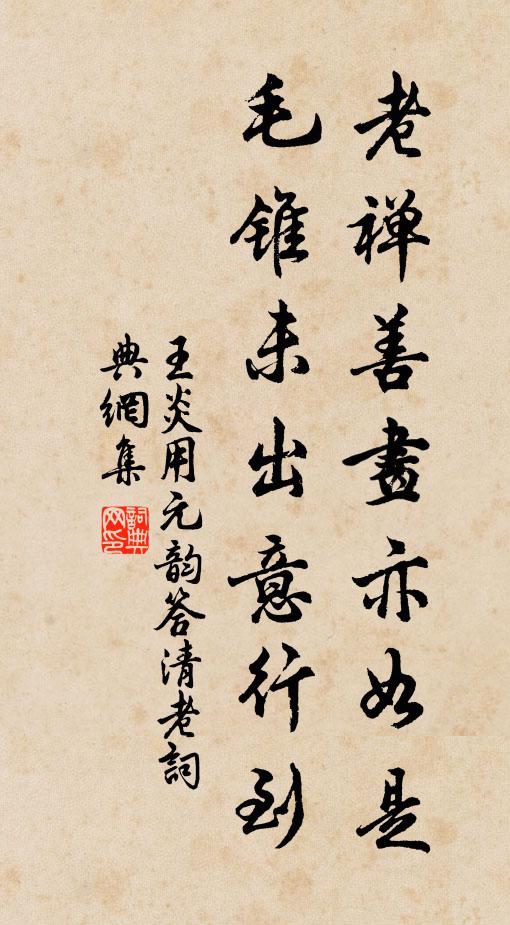 老禅善畫亦如是
毛錐未出意行到
王炎用元韵答清老詞
典網集
詞典
网印